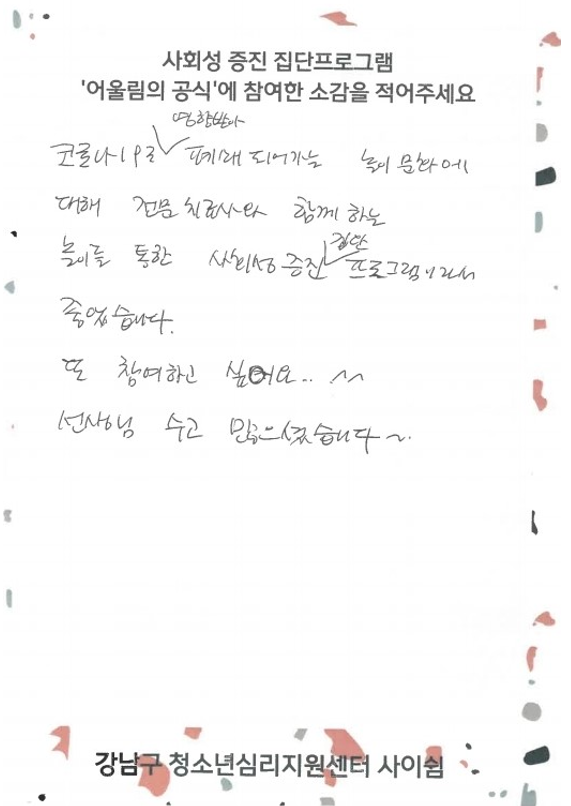 사회성 증진 집단프로그램
'어울림의 공식'에 참여한 소감을 적어주세요
영향받아
코로나19로 폐쇄 되어가는 놀이 문화에
대해 전문 치료사와 함께 하는
집단
놀이를 통한 사회성 증진 프로그램이라서
좋았습니다.
또 참여하고 싶어요.. ^^
선생님 수고 많으셨습니다~.
강남구 청소년심리지원센터 사이쉼